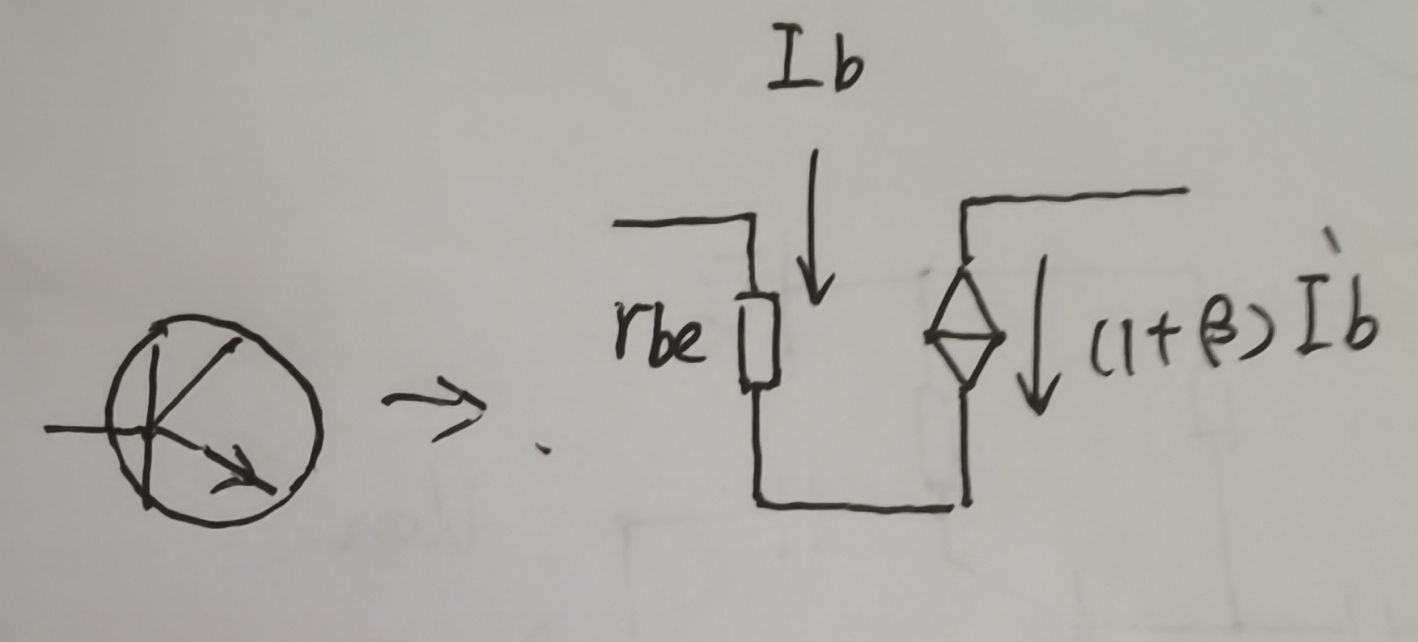 Ib
rbe
(1+β) İb